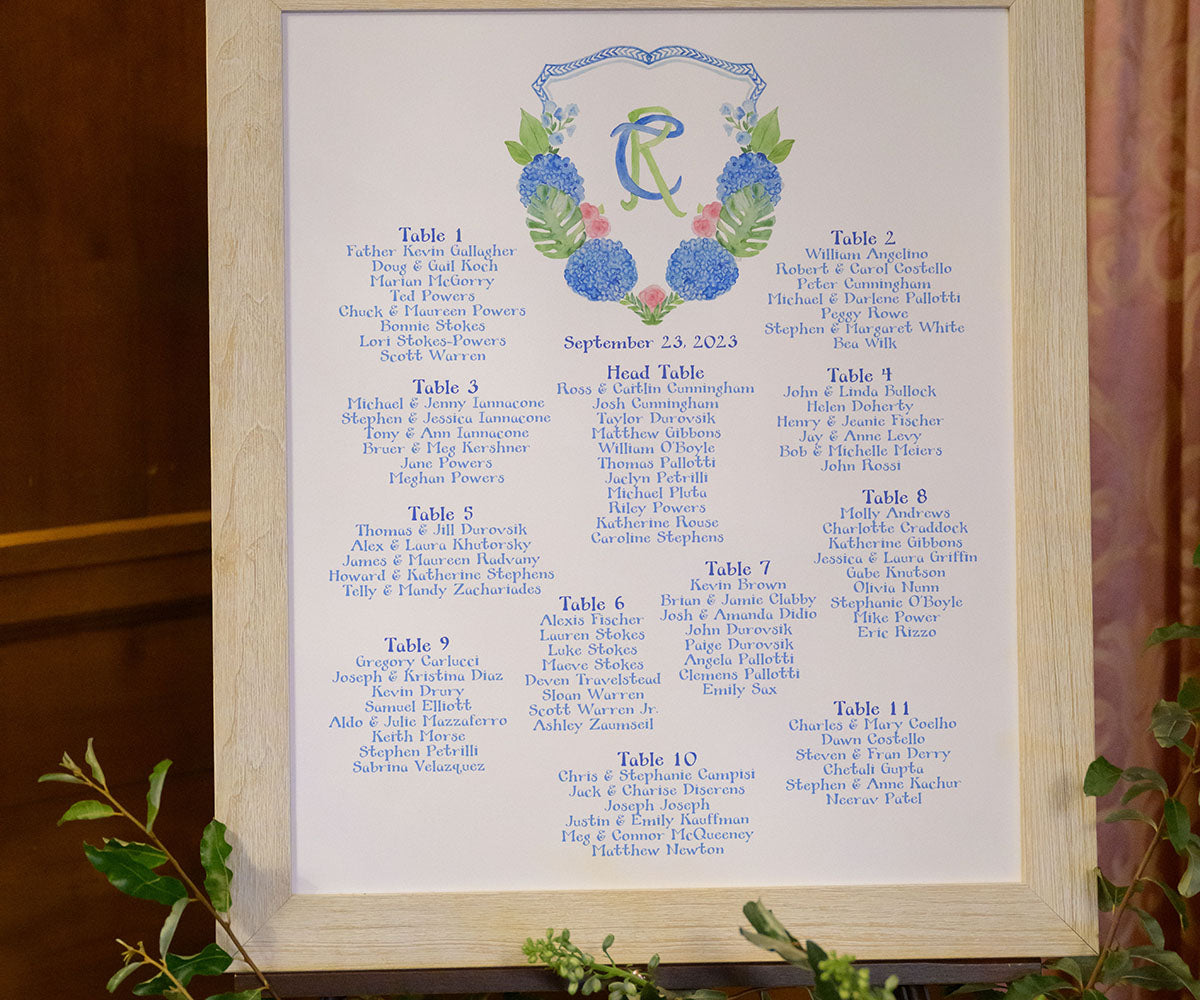 CR
Table 1
Father Kevin Gallagher
Doug & Gail Koch
Marian McGorry
Ted Powers
Chuck & Maureen Powers
Bonnie Stokes
Lori Stokes-Powers
Scott Warren
Table 2
William Angelino
Robert & Carol Costello
Peter Cunningham
Michael & Darlene Pallotti
Peggy Rowe
Stephen & Margaret White
Bea Wilk
September 23, 2023
Head Table
Ross & Caitlin Cunningham
Josh Cunningham
Taylor Durovsik
Matthew Gibbons
William O'Boyle
Thomas Pallotti
Jaclyn Petrilli
Michael Pluta
Riley Powers
Katherine Rouse
Caroline Stephens
Table 3
Michael & Jenny Iannacone
Stephen & Jessica Iannacone
Tony & Ann Iannacone
Bruer & Meg Kershner
Jane Powers
Meghan Powers
Table 4
John & Linda Bullock
Helen Doherty
Henry & Jeanie Fischer
Jay & Anne Levy
Bob & Michelle Meiers
John Rossi
Table 5
Thomas & Jill Durovsik
Alex & Laura Khutorsky
James & Maureen Radvany
Howard & Katherine Stephens
Telly & Mandy Zachariades
Table 6
Alexis Fischer
Lauren Stokes
Luke Stokes
Maeve Stokes
Deven Travelstead
Sloan Warren
Scott Warren Jr.
Ashley Zaumseil
Table 7
Kevin Brown
Brian & Jamie Clabby
Josh & Amanda Didio
John Durovsik
Paige Durovsik
Angela Pallotti
Clemens Pallotti
Emily Sax
Table 8
Molly Andrews
Charlotte Craddock
Katherine Gibbons
Jessica & Laura Griffin
Gabe Knutson
Olivia Nunn
Stephanie O'Boyle
Mike Power
Eric Rizzo
Table 9
Gregory Carlucci
Joseph & Kristina Diaz
Kevin Drury
Samuel Elliott
Aldo & Julie Mazzaferro
Keith Morse
Stephen Petrilli
Sabrina Velazquez
Table 10
Chris & Stephanie Campisi
Jack & Charise Diserens
Joseph Joseph
Justin & Emily Kauffman
Meg & Connor McQueeney
Matthew Newton
Table 11
Charles & Mary Coelho
Dawn Costello
Steven & Fran Derry
Chetali Gupta
Stephen & Anne Kachur
Neerav Patel